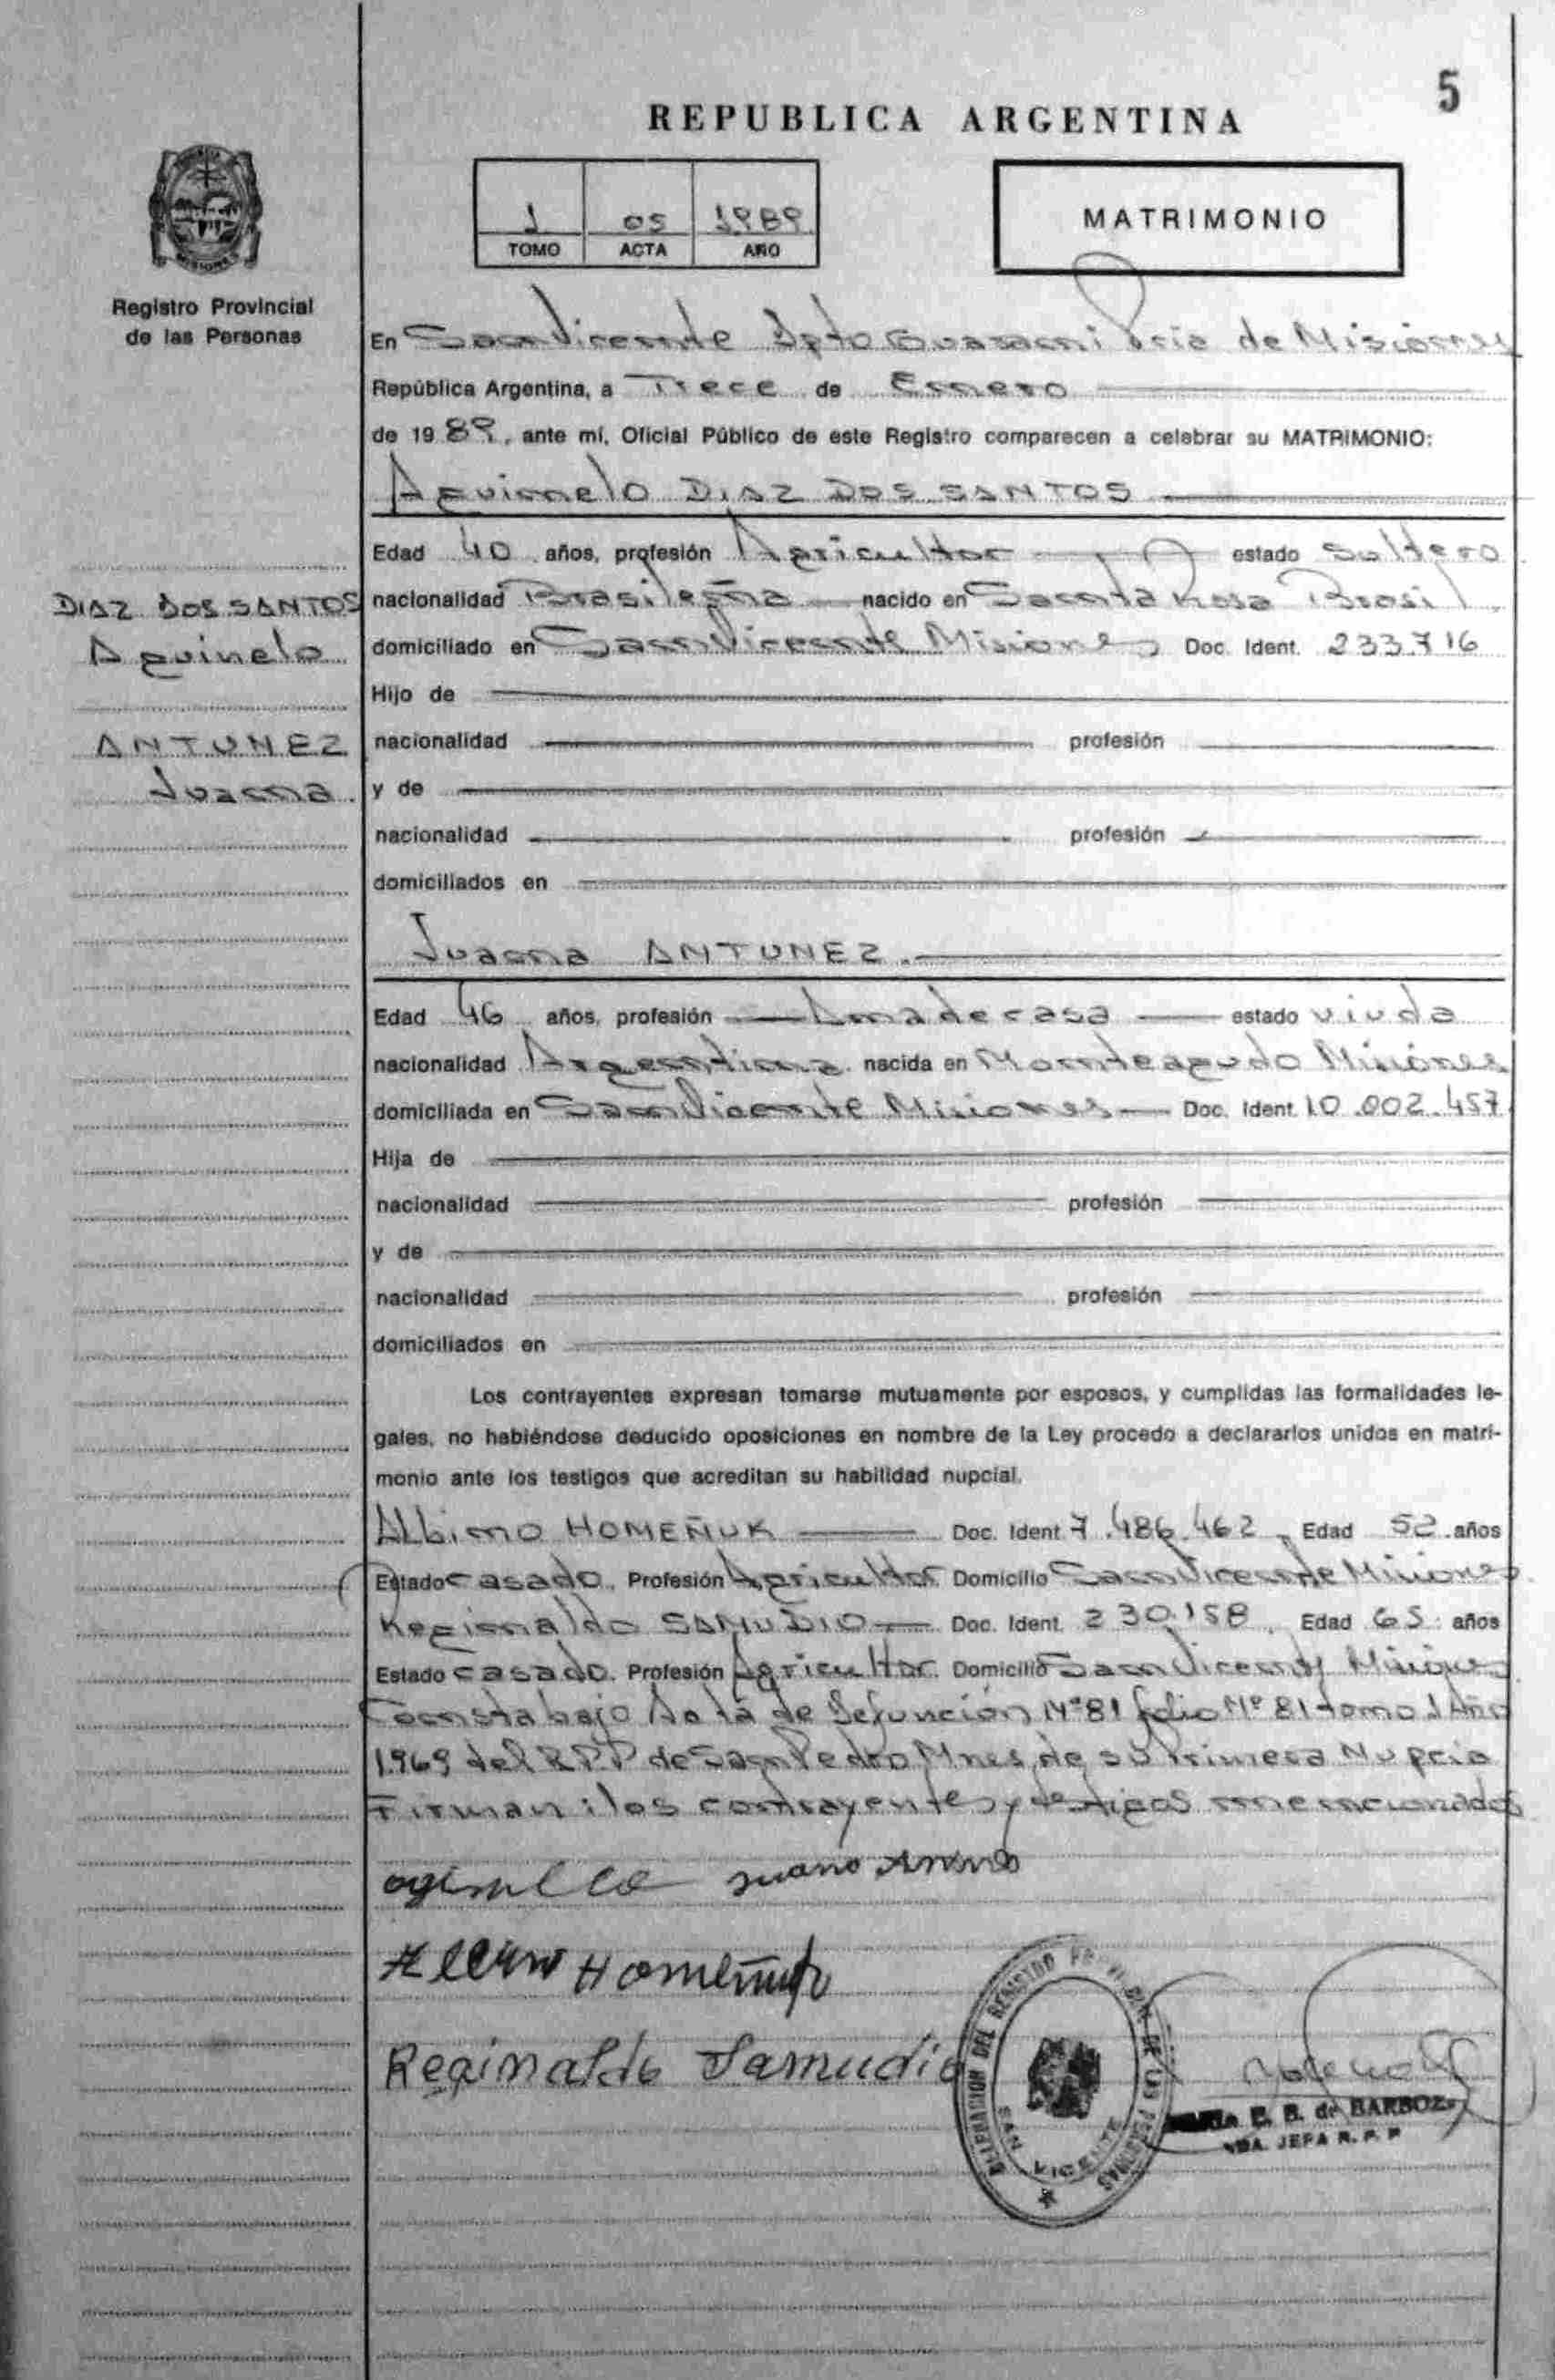 5
REPUBLICA ARGENTINA
1 05 1989
TOMO ACTA AÑO
MATRIMONIO
MISIONES
Registro Provincial
de las Personas
En San Vicente Dpto Guarani Pcia de Misiones
República Argentina, a Trece de Enero
de 1989, ante mí, Oficial Público de este Registro comparecen a celebrar su MATRIMONIO:
Aguinelo DIAZ DOS SANTOS
Edad 40 años, profesión Agricultor estado Soltero
DIAZ DOS SANTOS
Aguinelo
ANTUNEZ
Juana
nacionalidad Brasileña nacido en Santa Rosa Brasil
domiciliado en San Vicente Misiones Doc. Ident. 233.716
Hijo de
nacionalidad profesión
y de
nacionalidad profesión
domiciliados en
Juana ANTUNEZ.
Edad 46 años, profesión Ama de casa estado viuda
nacionalidad Argentina nacida en Monteagudo Misiones
domiciliada en San Vicente Misiones Doc. Ident. 10.002.457
Hija de
nacionalidad profesión
y de
nacionalidad profesión
domiciliados en
Los contrayentes expresan tomarse mutuamente por esposos, y cumplidas las formalidades le-
gales, no habiéndose deducido oposiciones en nombre de la Ley procedo a declararlos unidos en matri-
monio ante los testigos que acreditan su habilidad nupcial.
Albino HOMEÑUK Doc. Ident. 7.486.462 Edad 52 años
Estado casado. Profesión Agricultor Domicilio San Vicente Misiones
Reginaldo SAMUDIO Doc. Ident. 230.158 Edad 65 años
Estado casado. Profesión Agricultor. Domicilio San Vicente Misiones
Consta bajo Acta de Defunción Nº 81 folio Nº 81 tomo 1 Año
1969 del R.P.P de San Pedro Mnes, de su Primera Nupcia
Firman: los contrayentes y testigos mencionados
Homeñuk
Reginaldo Samudio
DELEGACION DEL REGISTRO PROVINCIAL DE LAS PERSONAS
SAN VICENTE
E. B. de BARBOZA
JEFA R. P. P